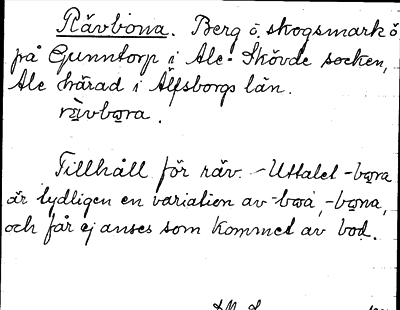 Rävbona. Berg o. skogsmark ö
på Gunntorp i Ale-Skövde socken,
Ale härad i Älfsborgs län.
rävbora.
Tillhåll för räv. - Uttalet -bora
är tydligen en variation av -boa, -bona,
och får ej anses som kommet av bod.